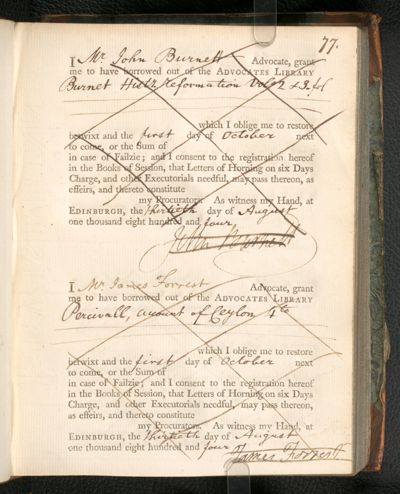 77.
I Mr John Burnett Advocate, grant
me to have borrowed out of the ADVOCATES LIBRARY
Burnet Hist: reformation Vol: 2 & 3. fol
which I oblige me to restore
betwixt and the first day of October next
to come, or the Sum of
in case of Failzie; and I consent to the registration hereof
in the Books of Session, that Letters of Horning on six Days
Charge, and other Executorials needful, may pass thereon, as
effeirs, and thereto constitute
my Procurators. As witness my Hand, at
EDINBURGH, the thirtieth day of August
one thousand eight hundred and four
John Burnett
I Mr James Forrest Advocate, grant
me to have borrowed out of the ADVOCATES LIBRARY
Percivall, account of Ceylon 4to
which I oblige me to restore
betwixt and the first day of October next
to come, or the Sum of
in case of Failzie; and I consent to the registration hereof
in the Books of Session, that Letters of Horning on six Days
Charge, and other Executorials needful, may pass thereon,
as effeirs, and thereto constitute
my Procurators. As witness my Hand, at
EDINBURGH, the thirtieth day of August
one thousand eight hundred and four
James Forrest